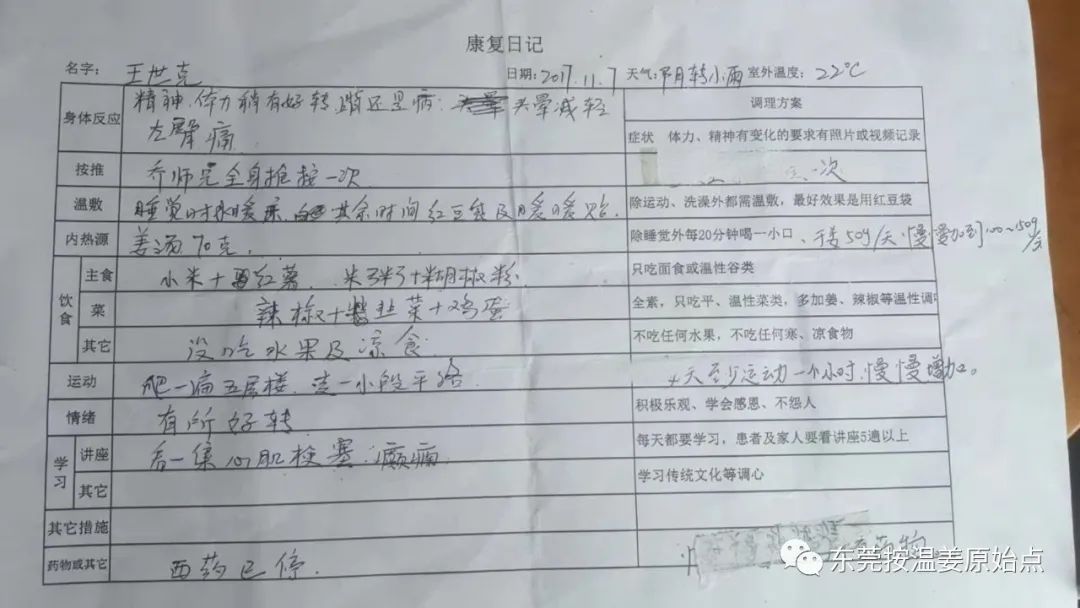 康复日记
名字: 王世克 日期: 2017.11.7 天气: 阴转小雨 室外温度: 22℃
身体反应 精神、体力稍有好转、蹲还是病. 头晕减轻
左臂痛
调理方案
症状 体力、精神有变化的要求有照片或视频记录
按推 乔师兄全身推按一次 一次
温敷 睡觉时水暖床, 其余时间红豆袋及暖暖贴. 除运动、洗澡外都需温敷,最好效果是用红豆袋
内热源 姜汤70克. 除睡觉外每20分钟喝一小口、干姜50g/天 慢慢加到100~150g/天
饮食
主食 小米+红薯. 米子籽+胡椒粉 只吃面食或温性谷类
菜 辣椒+韭菜+鸡蛋 全素,只吃平、温性菜类,多加姜、辣椒等温性调
其它 没吃水果及凉食 不吃任何水果,不吃任何寒、凉食物
运动 爬一遍五层楼. 走一小段平路. 天至少运动一个小时.慢慢增加。
情绪 有所好转 积极乐观、学会感恩、不怨人
学习
讲座 看一集心肌梗塞.癫痫 每天都要学习,患者及家人要看讲座5遍以上
其它 学习传统文化等调心
其它措施
药物或其它 西药已停. 药物
东莞按温姜原始点